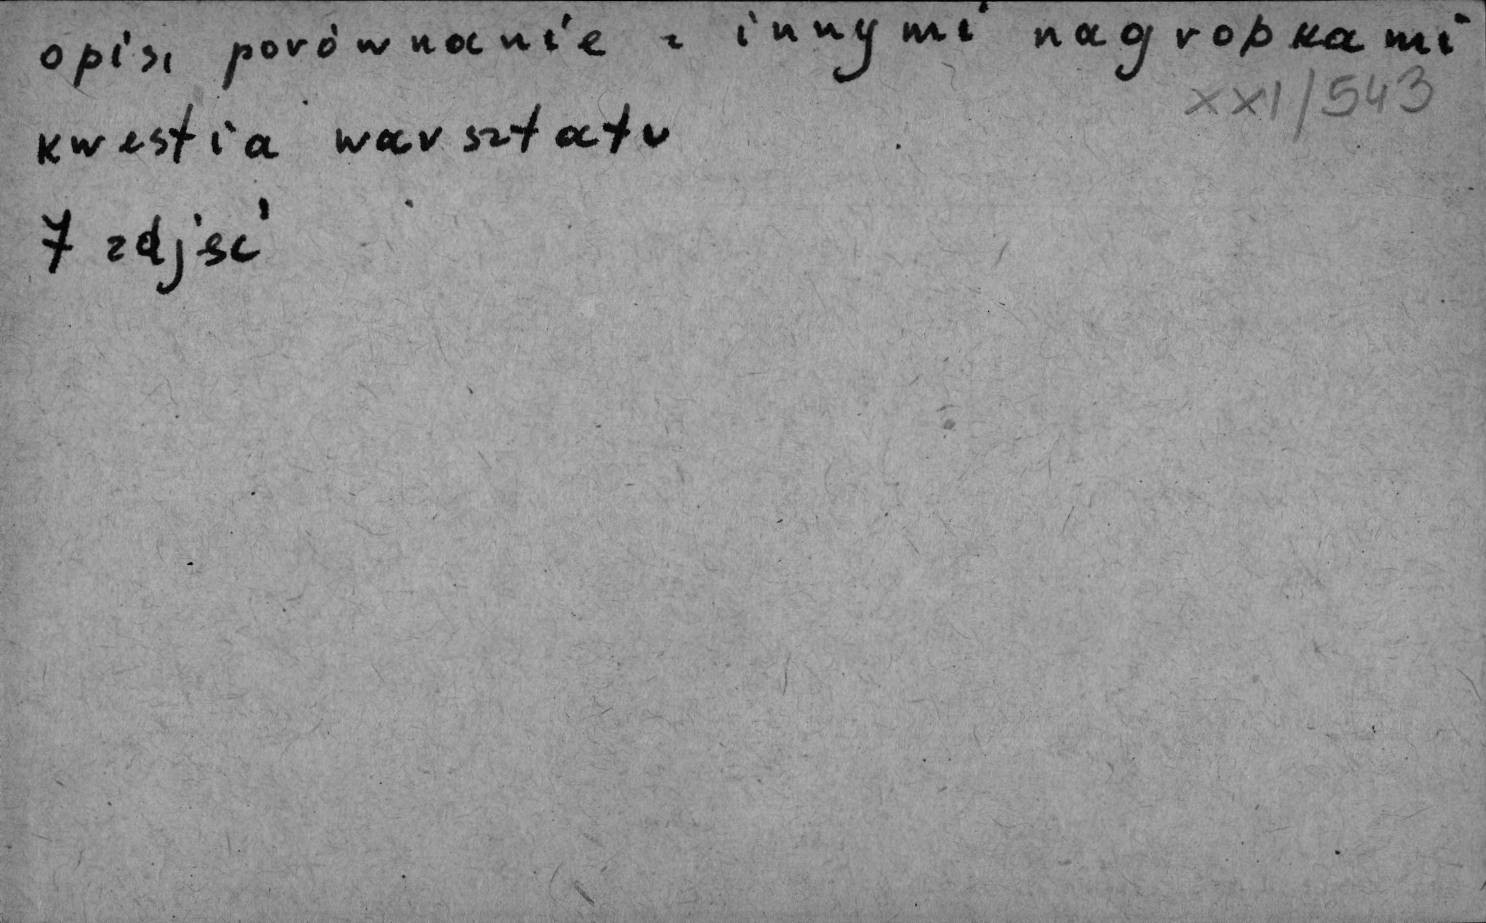 opis, porównanie z innymi nagrobkami
XXI/543
kwestia warsztatu
7 zdjęć